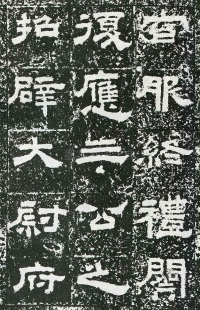 官服終禮闋
復應三公之
招辟大尉府